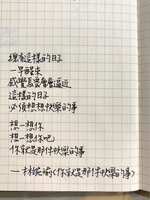 總有這樣的日子
一早醒來
感覺長當會逼近
這樣的日子
必須想想快樂的事
想一想你
想一想你吧
你就是那件快樂的事
—林婉瑜《你就是那件快樂的事》